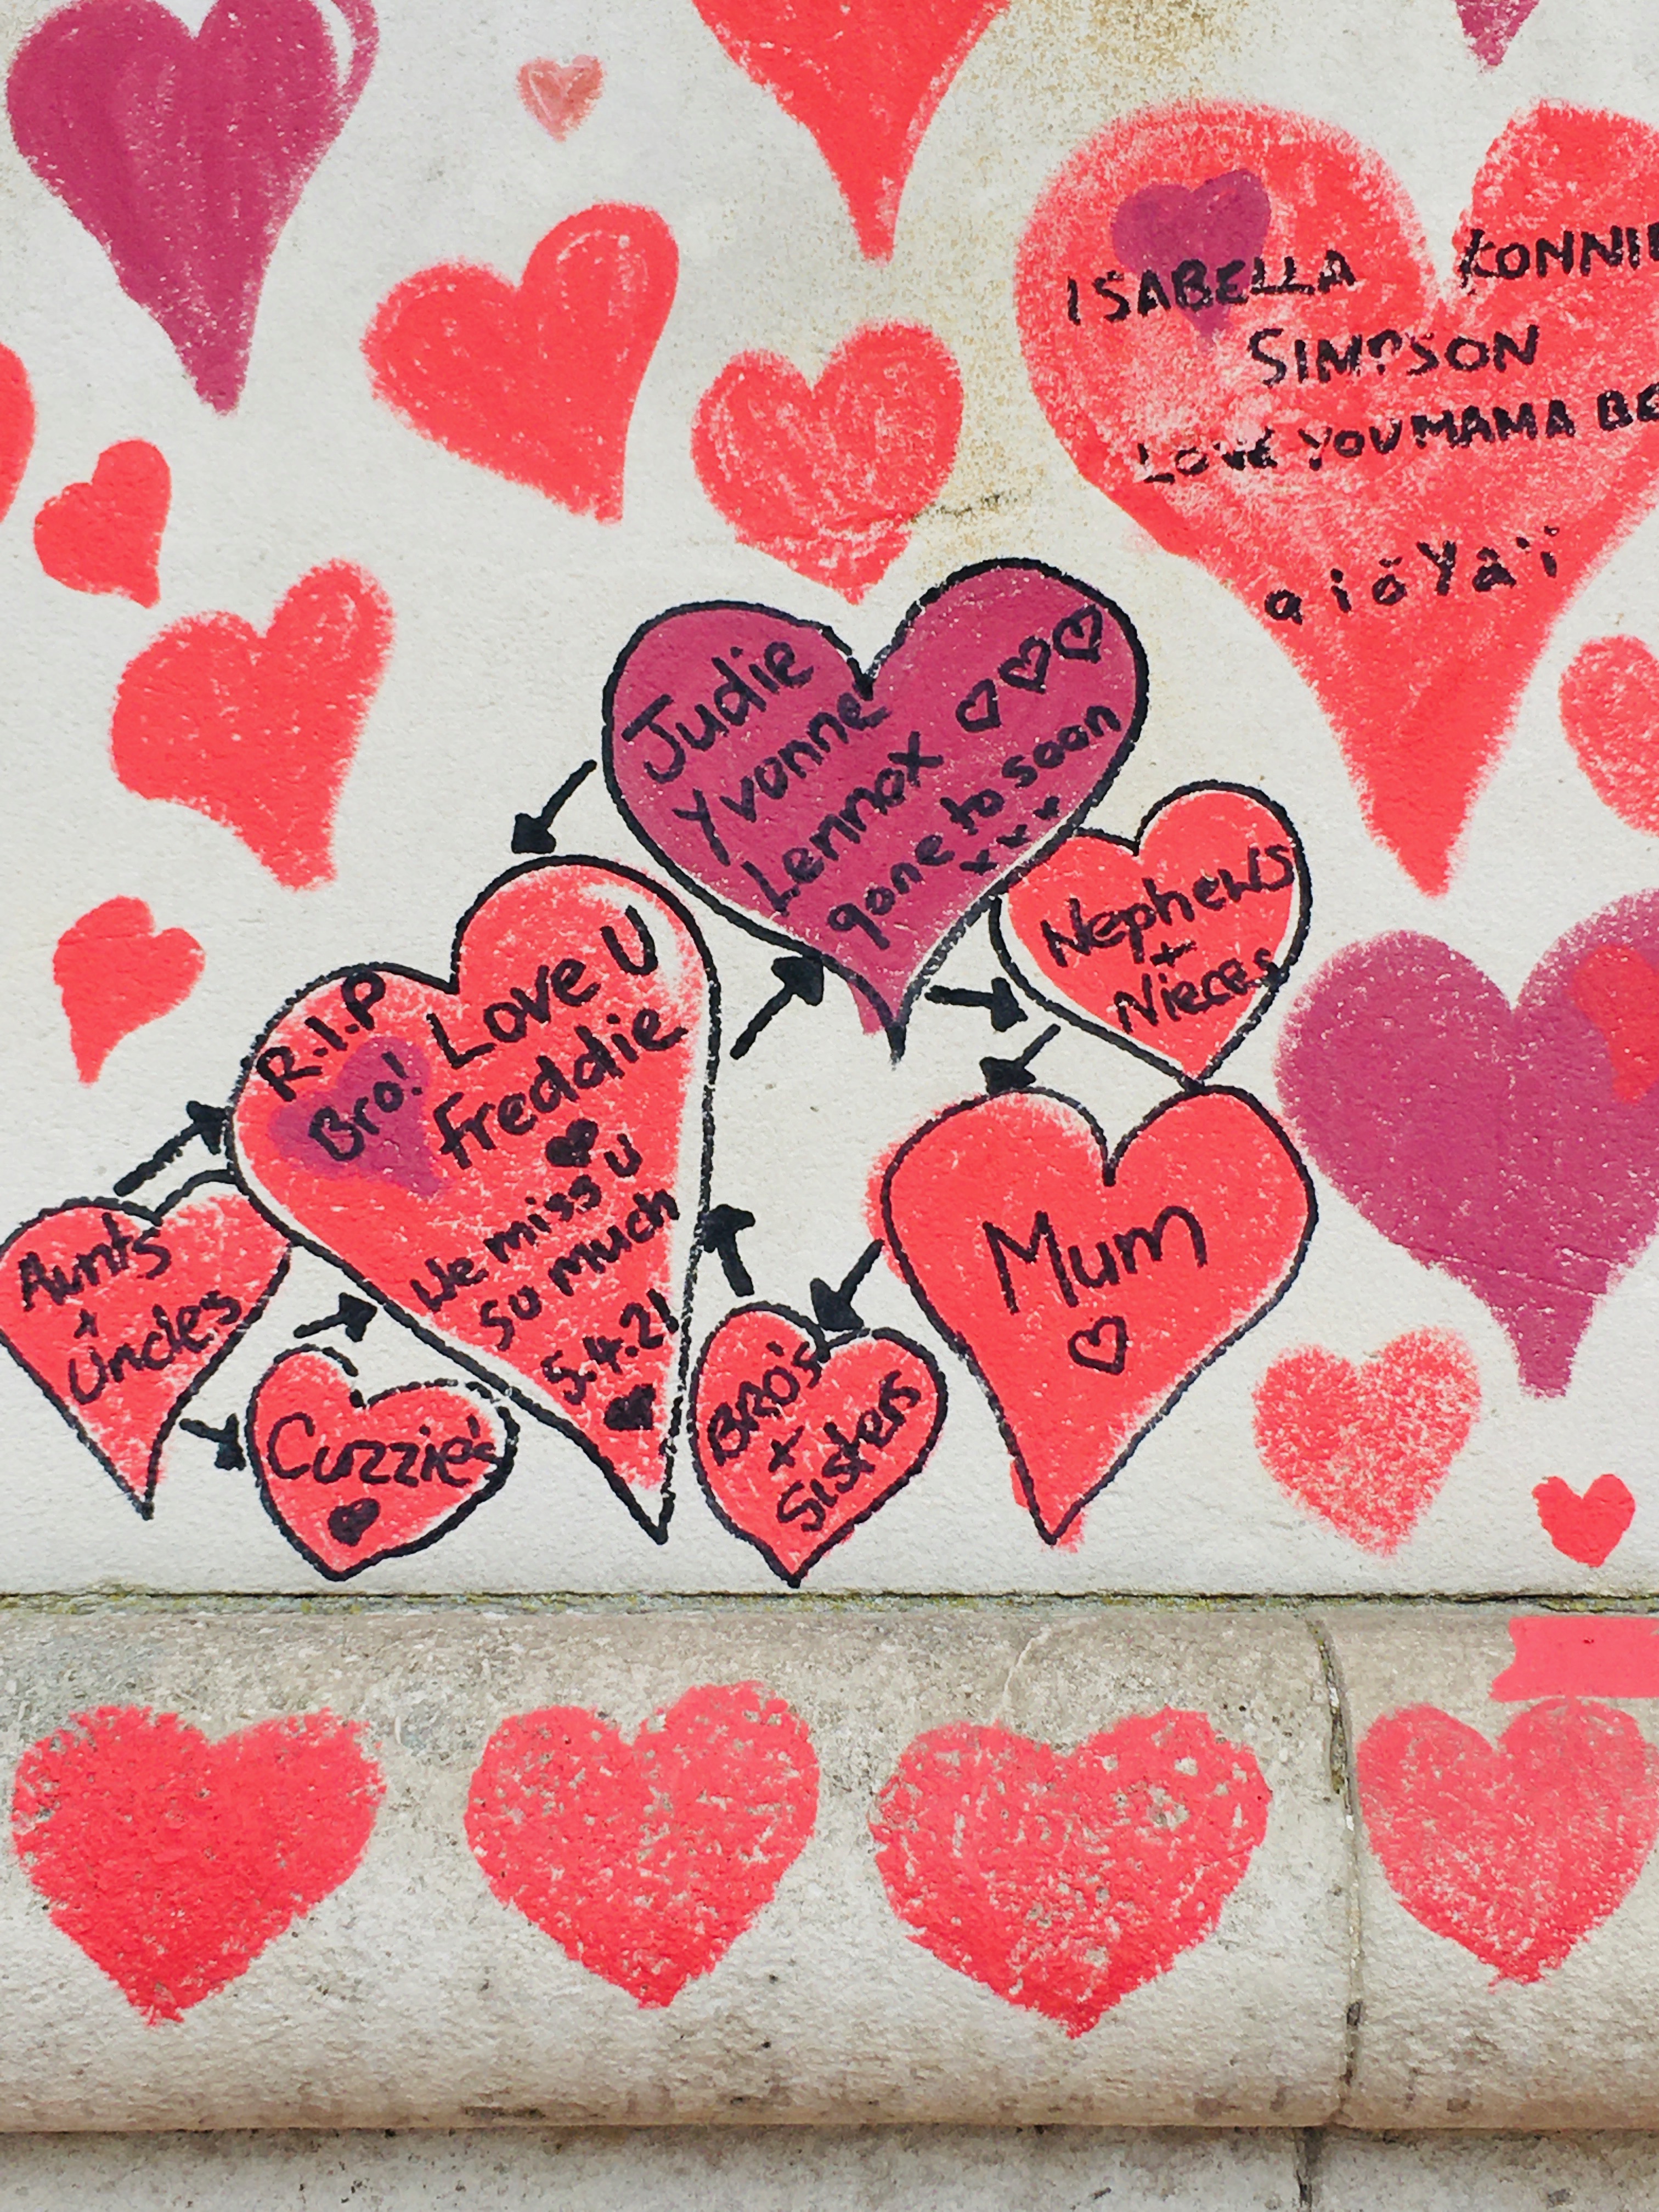 ISABELLA
SIMPSON
LOVE YOU MAMA
Judie
Yvonne
Lennox ♡♡♡
gone to soon
xxx
Nephews
+
Nieces
R.I.P
Bro!
Love U
freddie
♥
We miss U
so much
5.4.21
♥
Aunts
+
Uncles
Cuzzie's
♥
Bro's
+
Sisters
Mum
♡